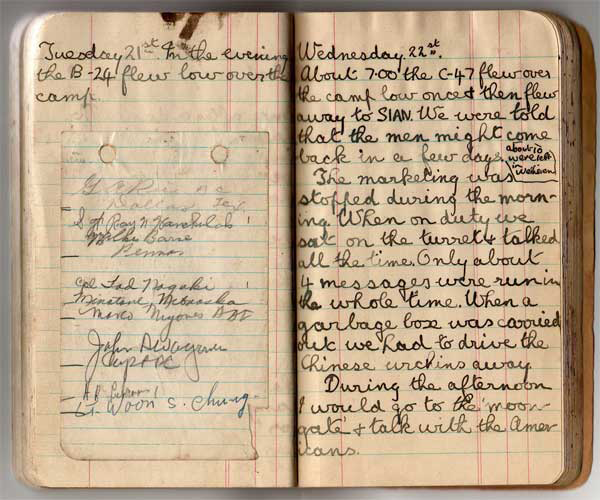 Tuesday 21st. In the evening
the B-24 flew low over the
camp.
Dallas Tex
Wilkes Barre
Penna
Cpl. Tad Nagaki
Minatare, Nebraska
John
Lt. Woon S. Chung.
Wednesday 22st.
About 7.00 the C-47 flew over
the camp low once & then flew
away to SIAN. We were told
that the men might come
back in a few days.
about 10
were left
in Weihsien
The marketing was
stopped during the morn-
ing. When on duty we
sat on the turret & talked
all the time. Only about
4 messages were run in
the whole time. When a
garbage box was carried
out we had to drive the
Chinese urchins away.
During the afternoon
I would go to the 'moon-
gate' & talk with the Amer-
icans.